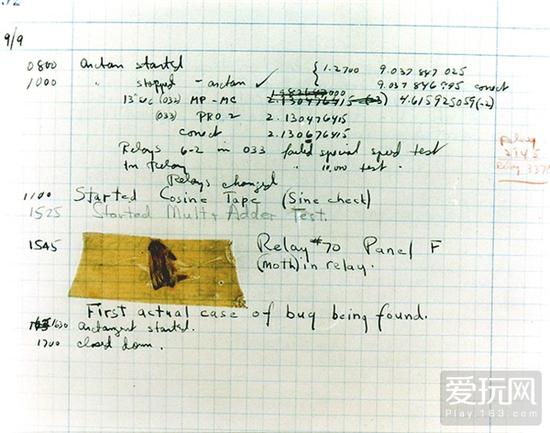 9/9
0800 arctan started { 1.2700 9.037 847 025
1000 " stopped - arctan ✓ 9.037 846 995 correct
13" uc (032) MP - MC 2.130476415 4.615925059(-2)
(033) PRO 2 2.130476415
correct 2.130676415
Relays 6-2 in 033 failed special speed test
In Relay " 10,000 test .
Relay
2145
Relay 3370
Relays changed
1100 Started Cosine Tape (Sine check)
1525 Started Mult + Adder Test.
1545 Relay #70 Panel F
(moth) in relay.
First actual case of bug being found.
1630 arctangent started.
1700 closed down.
爱玩网
Play.163.com